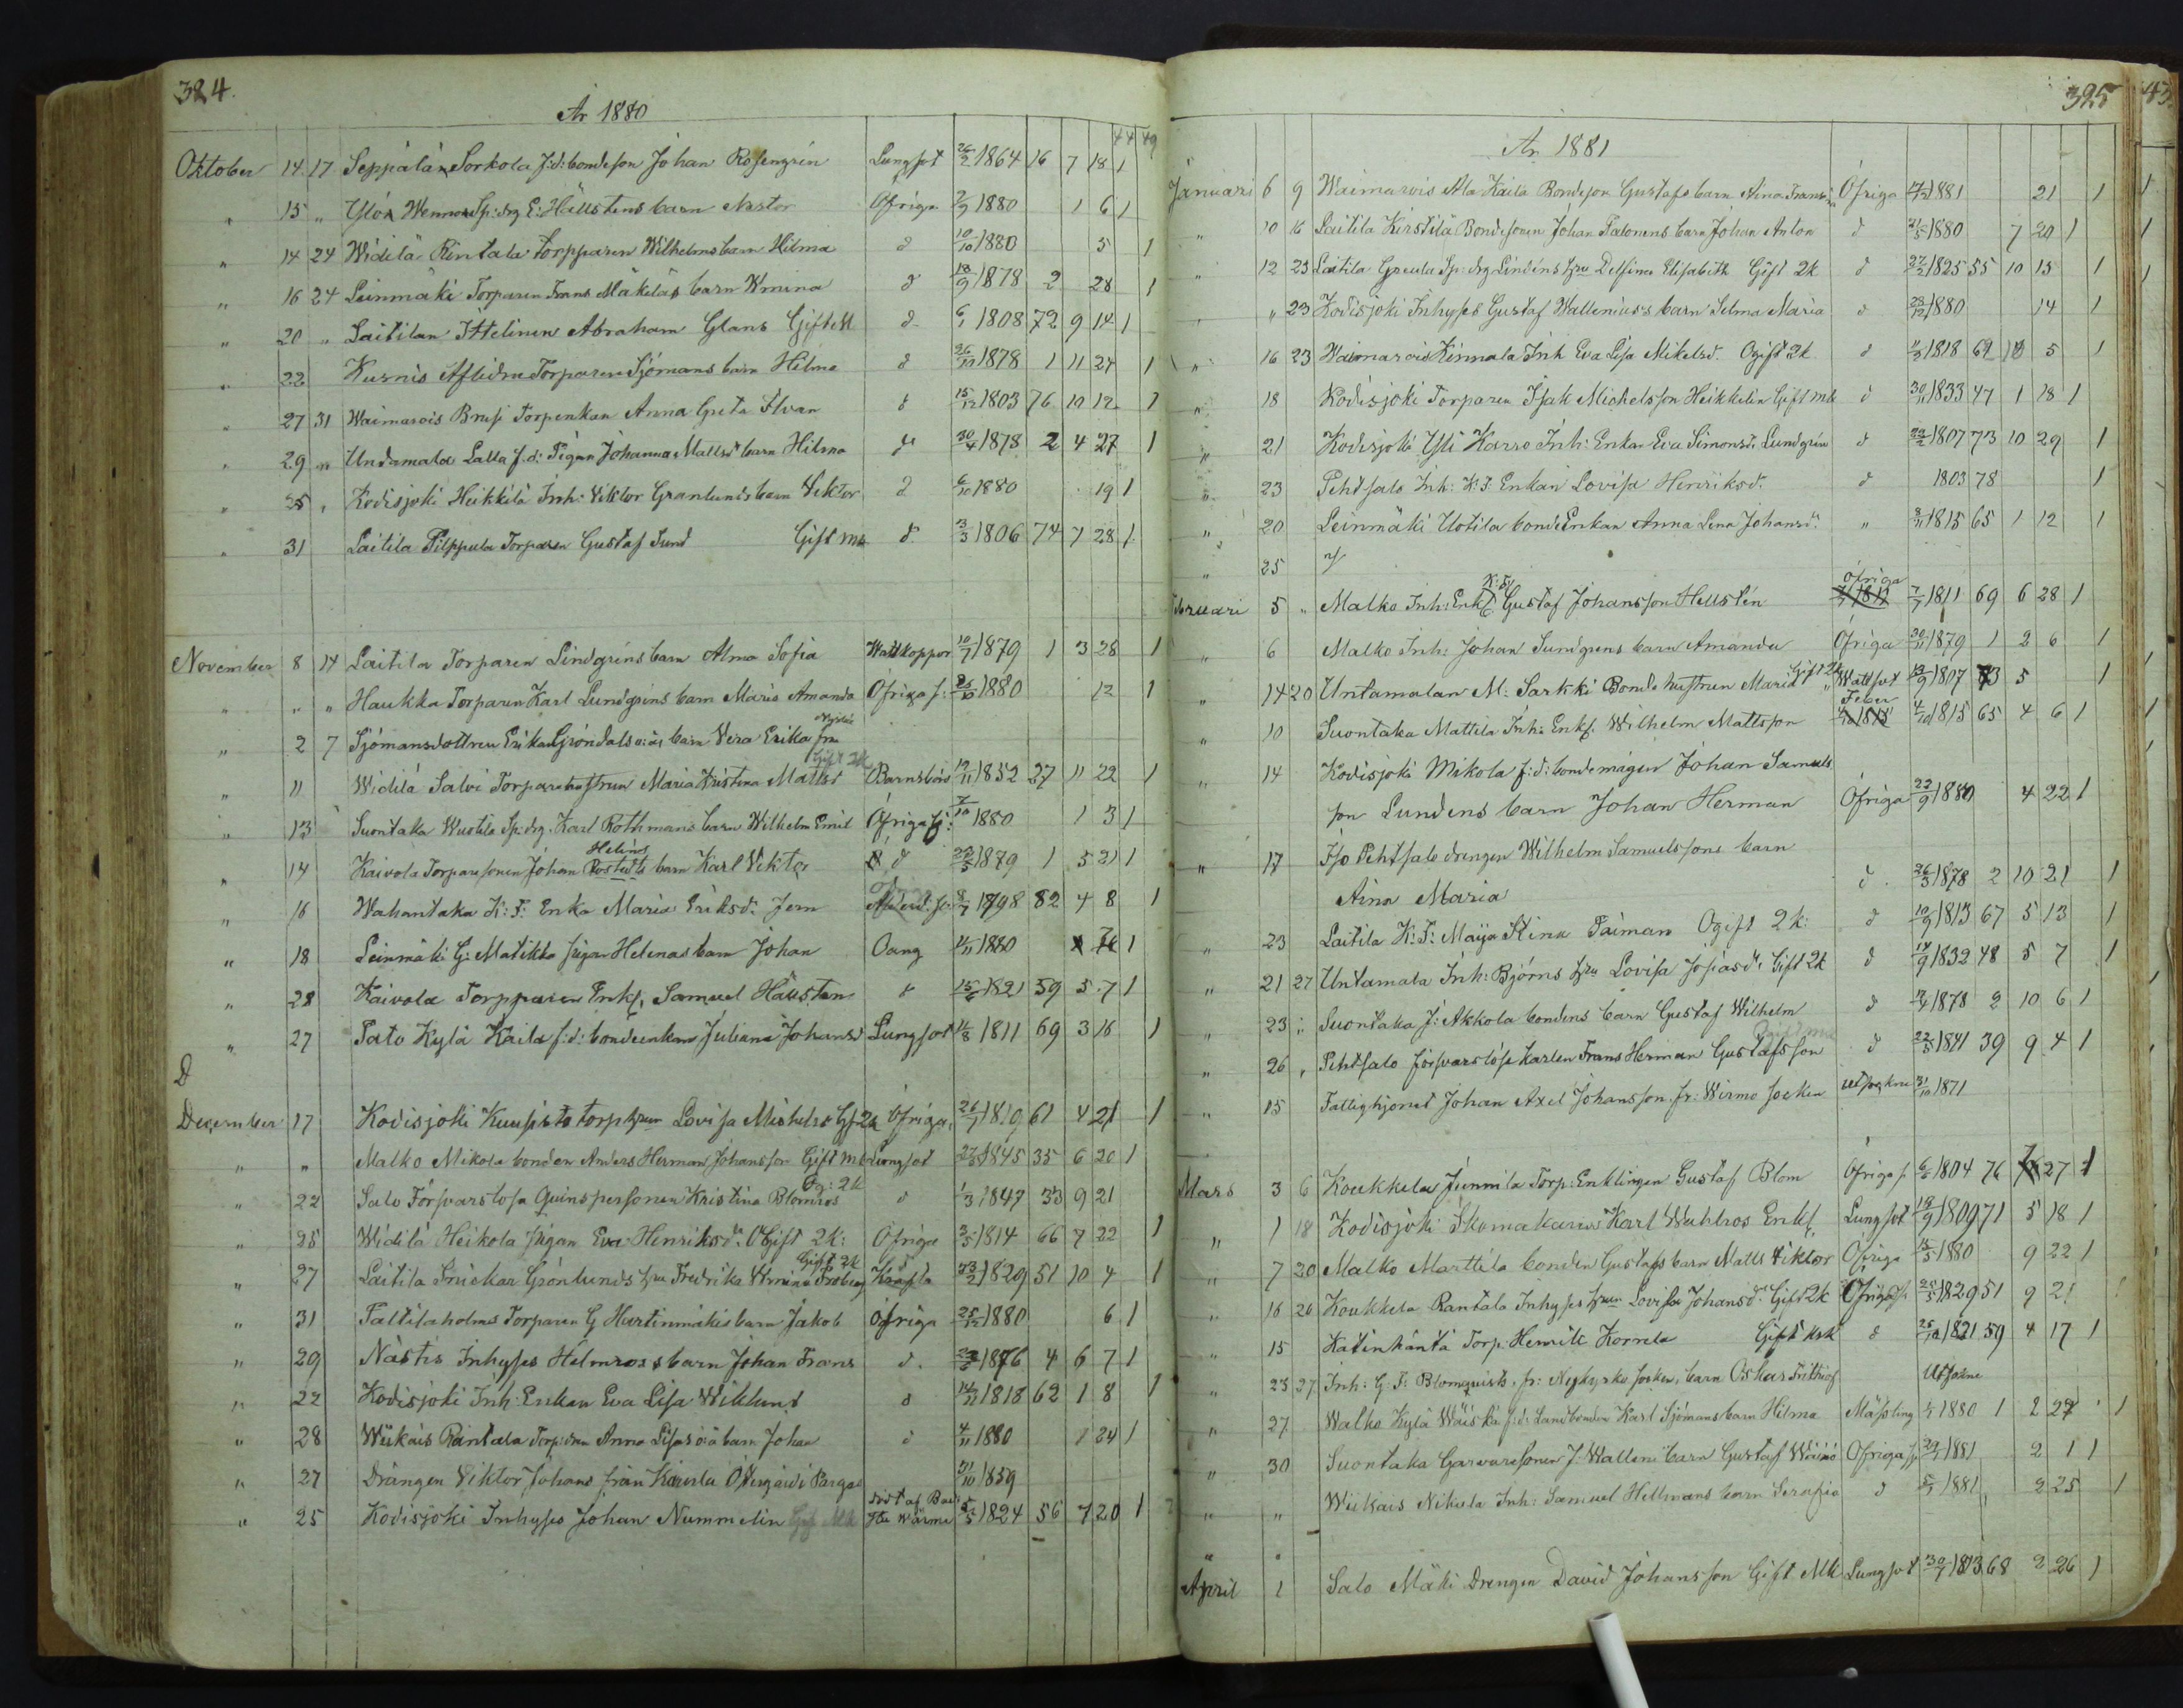 324.
År 1880
44 49
Oktober 14 17 Seppälän Sorkola f:d: bondeson Johan Rosengrén Lungsot 26/2 1864 16 7 18 1
" 15 " Wennon Sp:drg E: Hällstens barn Nestor Öfriga 9/9 1880 1 6 1
" 14 24 Widilä Rintala torpparen Wilhelms barn Hilma d 10/10 1880 5 1
" 16 24 Leinmäki Torparen Frans Mäkeläs barn Wmina d 18/9 1878 2 28 1
" 20 " Laitilan Ittelinen Abraham Glans Gift M d. 6/1 1808 72 9 14 1
" 22 Kusnis Torparen Sjömans barn Hilma d 1878 1 11 24 1
" 27 31 Waimarois Brusi torpenkan Anna Greta Ilvan d 15/12 1803 76 10 12 1
" 29 " Undamala Lalla f.d: Pigan Johanna Mattsd: barn Hilma d: 1878 2 4 27 1
" 25 " Kodisjoki Heikkilä Inh: Viktor Granlunds barn Viktor d 6/10 1880 19 1
" 31 Laitila Pilppula Torparen Gustaf Sund Gift mk d 3/3 1806 74 7 28 1
November 8 14 Laitila Torparen Lindgréns barn Alma Sofia Wattkoppor 10/7 1879 1 3 28 1
" " " Haukka Torparen Karl Lundgréns barn Maria Amanda Öfriga s: 26/10 1880 12 1
" 2 7 Sjömansdottren Erika Gröndals o:ä: barn Vera Erika frn Nystad
" 11 Widilä Salvi Torparehustrun Maria Kristina Mattsd Gift 2k Barnsbörd 19/11 1852 27 11 22 1
" 13 Suontaka Wuotila Sp:drg. Karl Rothmans barn Wilhelm Emil Öfriga sj: 7/10 1880 1 3 1
" 14 Kaivola Torparesonen Johan Rostedts Heléns barn Karl Viktor d 1879 1 5 21 1
" 16 Wahantaka K: F: Enka Maria Eriksd: Jern öfriga 8/7 1798 82 4 8 1
" 18 Leinmäki G: Matikka pigan Helenas barn Johan Oang 11/11 1880 7 1
" 28 Kaivola Torpparen Enkl, Samuel Hällsten d 15/6 1821 59 5 7 1
" 27 Palo Kylä Kaila f:d: bondeenkan Juliana Johansd Lungsot 11/8 1811 69 3 16 1
D
December 17 Kodisjoki Kuusisto torphrun Lovisa Mickelsd Gft 2k öfriga, 26/7 1819 61 4 21 1
" " Malko Mikola bonden Anders Herman Johansson Gift mk Lungsot 27/5 1845 35 6 20 1
" 22 Salo Försvarslösa Quinspersonen Kristina Blomros Og: 2k d 1/3 1847 33 9 21
" 25 Widilä Heikola pigan Eva Henriksd:r Ogift 2k: Öfriga 3/5 1814 66 7 22 1
" 27 Laitila Snickar Grönlunds hru Fredrika Wmina Froberg Gift 2k Kräfta 23/2 1829 51 10 4 1
" 31 Taltilaholms Torparen G Hartinmäkis barn Jakob öfriga 25/12 1880 6 1
" 29 Nästis Inhyses Helmross barn Johan Frans d. 1876 4 6 7 1
" 22 Kodisjoki Inh: Enkan Eva Lisa Wiklund d 14/11 1818 62 1 8 1
" 28 Wiikais Rantala Torp:drn Anna Lisas o:ä barn Johan d 4/11 1880 1 24 1
" 27 Drängen Viktor Johans från Kärvla Öfvergård i Pargas 31/10 1859
" 25 Kodisjoki Inhyses Johan Nummelin Gift Mk död af Bad stu wärme 5/5 1824 56 7 20 1

325
43
År 1881
Januari 6 9 Waimarois Ala Kaila Bondeson Gustafs barn Aina Frans: Öfriga 1881 21 1
" 10 16 Laitila Kirstilä Bondesonen Johan Talonens barn Johan Anton d 1880 7 20 1
" 12 23 Laitila Greula Sp:drg Lindéns hru Delfina Elisabeth Gift 2k d 27/2 1825 55 10 15 1
" " 23 Kodisjoki Inhyses Gustaf Wallenius's barn Selma Maria d 29/12 1880 14 1
" 16 23 Waimarois Kinnala Inh Eva Lisa Mikelsd. Ogift 2k d 1818 62 10 5 1
" 18 Kodisjoki Torparen Isak Michelsson Heikkilin Gift mk d 30/11 1833 47 1 18 1
" 21 Kodisjoki Yli Karro Inh: Enkan Eva Simonsd: Lundgrén d 22/2 1807 73 10 29 1
" 23 Pehtsalo Inh: K:F: Enkan Lovisa Henriksd. d 1803 78 1
" 20 Leinmäki Uotila bondeEnkan Anna Lena Johansd: " 8/11 1815 65 1 12 1
" 25
Februari 5 " Malko Inh: Enkl. K:F: Gustaf Johansson Hellstén öfriga 7/7 1811 69 6 28 1
" 6 Malko Inh: Johan Sundgrens barn Amanda Öfriga 30/11 1879 1 2 6 1
" 14 20 Untamalan M: Sarkki Bondehustrun Maria Gift 2k Wattsot 13/9 1807 73 5 1
" 10 Suontaka Mattila Inh: Enkl. Wilhelm Mattsson Feber 4/10 1815 65 4 6 1
" 14 Kodisjoki Mikola f:d: bondemågen Johan Samuels
son Lundens barn Johan Herman Öfriga 22/9 1880 4 22 1
" 17 Iso Pehtsalo drengen Wilhelm Samuelssons barn
Aina Maria d. 26/3 1878 2 10 21 1
" 23 Laitila K:F: Maija Stina Taiman Ogift 2k: d 10/9 1813 67 5 13 1
" 21 27 Untamala Inh: Björns hru Lovisa Josiasd: Gift 2k d 14/9 1832 48 5 7 1
" 23 " Suontaka J: Akkola bondens barn Gustaf Wilhelm d 1878 2 10 6 1
" 26 " Pehtsalo försvarslöse karlen Frans Herman Gustafsson Ogift mk d 22/5 1841 39 9 4 1
" 15 Fattighjonet Johan Axel Johansson. fr: Wirmo Socken 31/10 1871
Mars 3 6 Koukkela Junnila Torp: Enklingen Gustaf Blom Öfriga s. 6/5 1804 76 27 1
" 1 18 Kodisjoki Skomakaren Karl Wahlros Enkl. Lungsot 13/9 1809 71 5 18 1
" 7 20 Malko Marttila bonden Gustafs barn Matts Viktor Öfriga 15/5 1880 9 22 1
" 16 26 Koukkela Rantala Inhyses hrun Lovisa Johansd:r Gift 2k Öfriga s: 25/5 1829 51 9 21 1
" 15 Katinhäntä Torp: Henrik Korrela Gift Mk d 1821 59 4 17 1
" 23 27 Inh: G: F: Blomqvists. fr: Nykyrko Socken, barn Oskar Frithiof Utsokne
" 27 Walko Kylä Wäiskä f:d: Landbonden Karl Sjömans barn Hilma Mässling 1880 1 2 27 1
" 30 Suontaka Garvaresonen J: Walleni barn Gustaf Wäinö Öfriga sj: 29/1 1881 2 1 1
" " Wiikais Nikula Inh: Samuel Hellmans barn Serafia d 5/1 1881 2 25 1
" "
April 1 Salo Mäki Drengen David Johansson Gift Mk Lungsot 30/1 1813 68 2 26 1